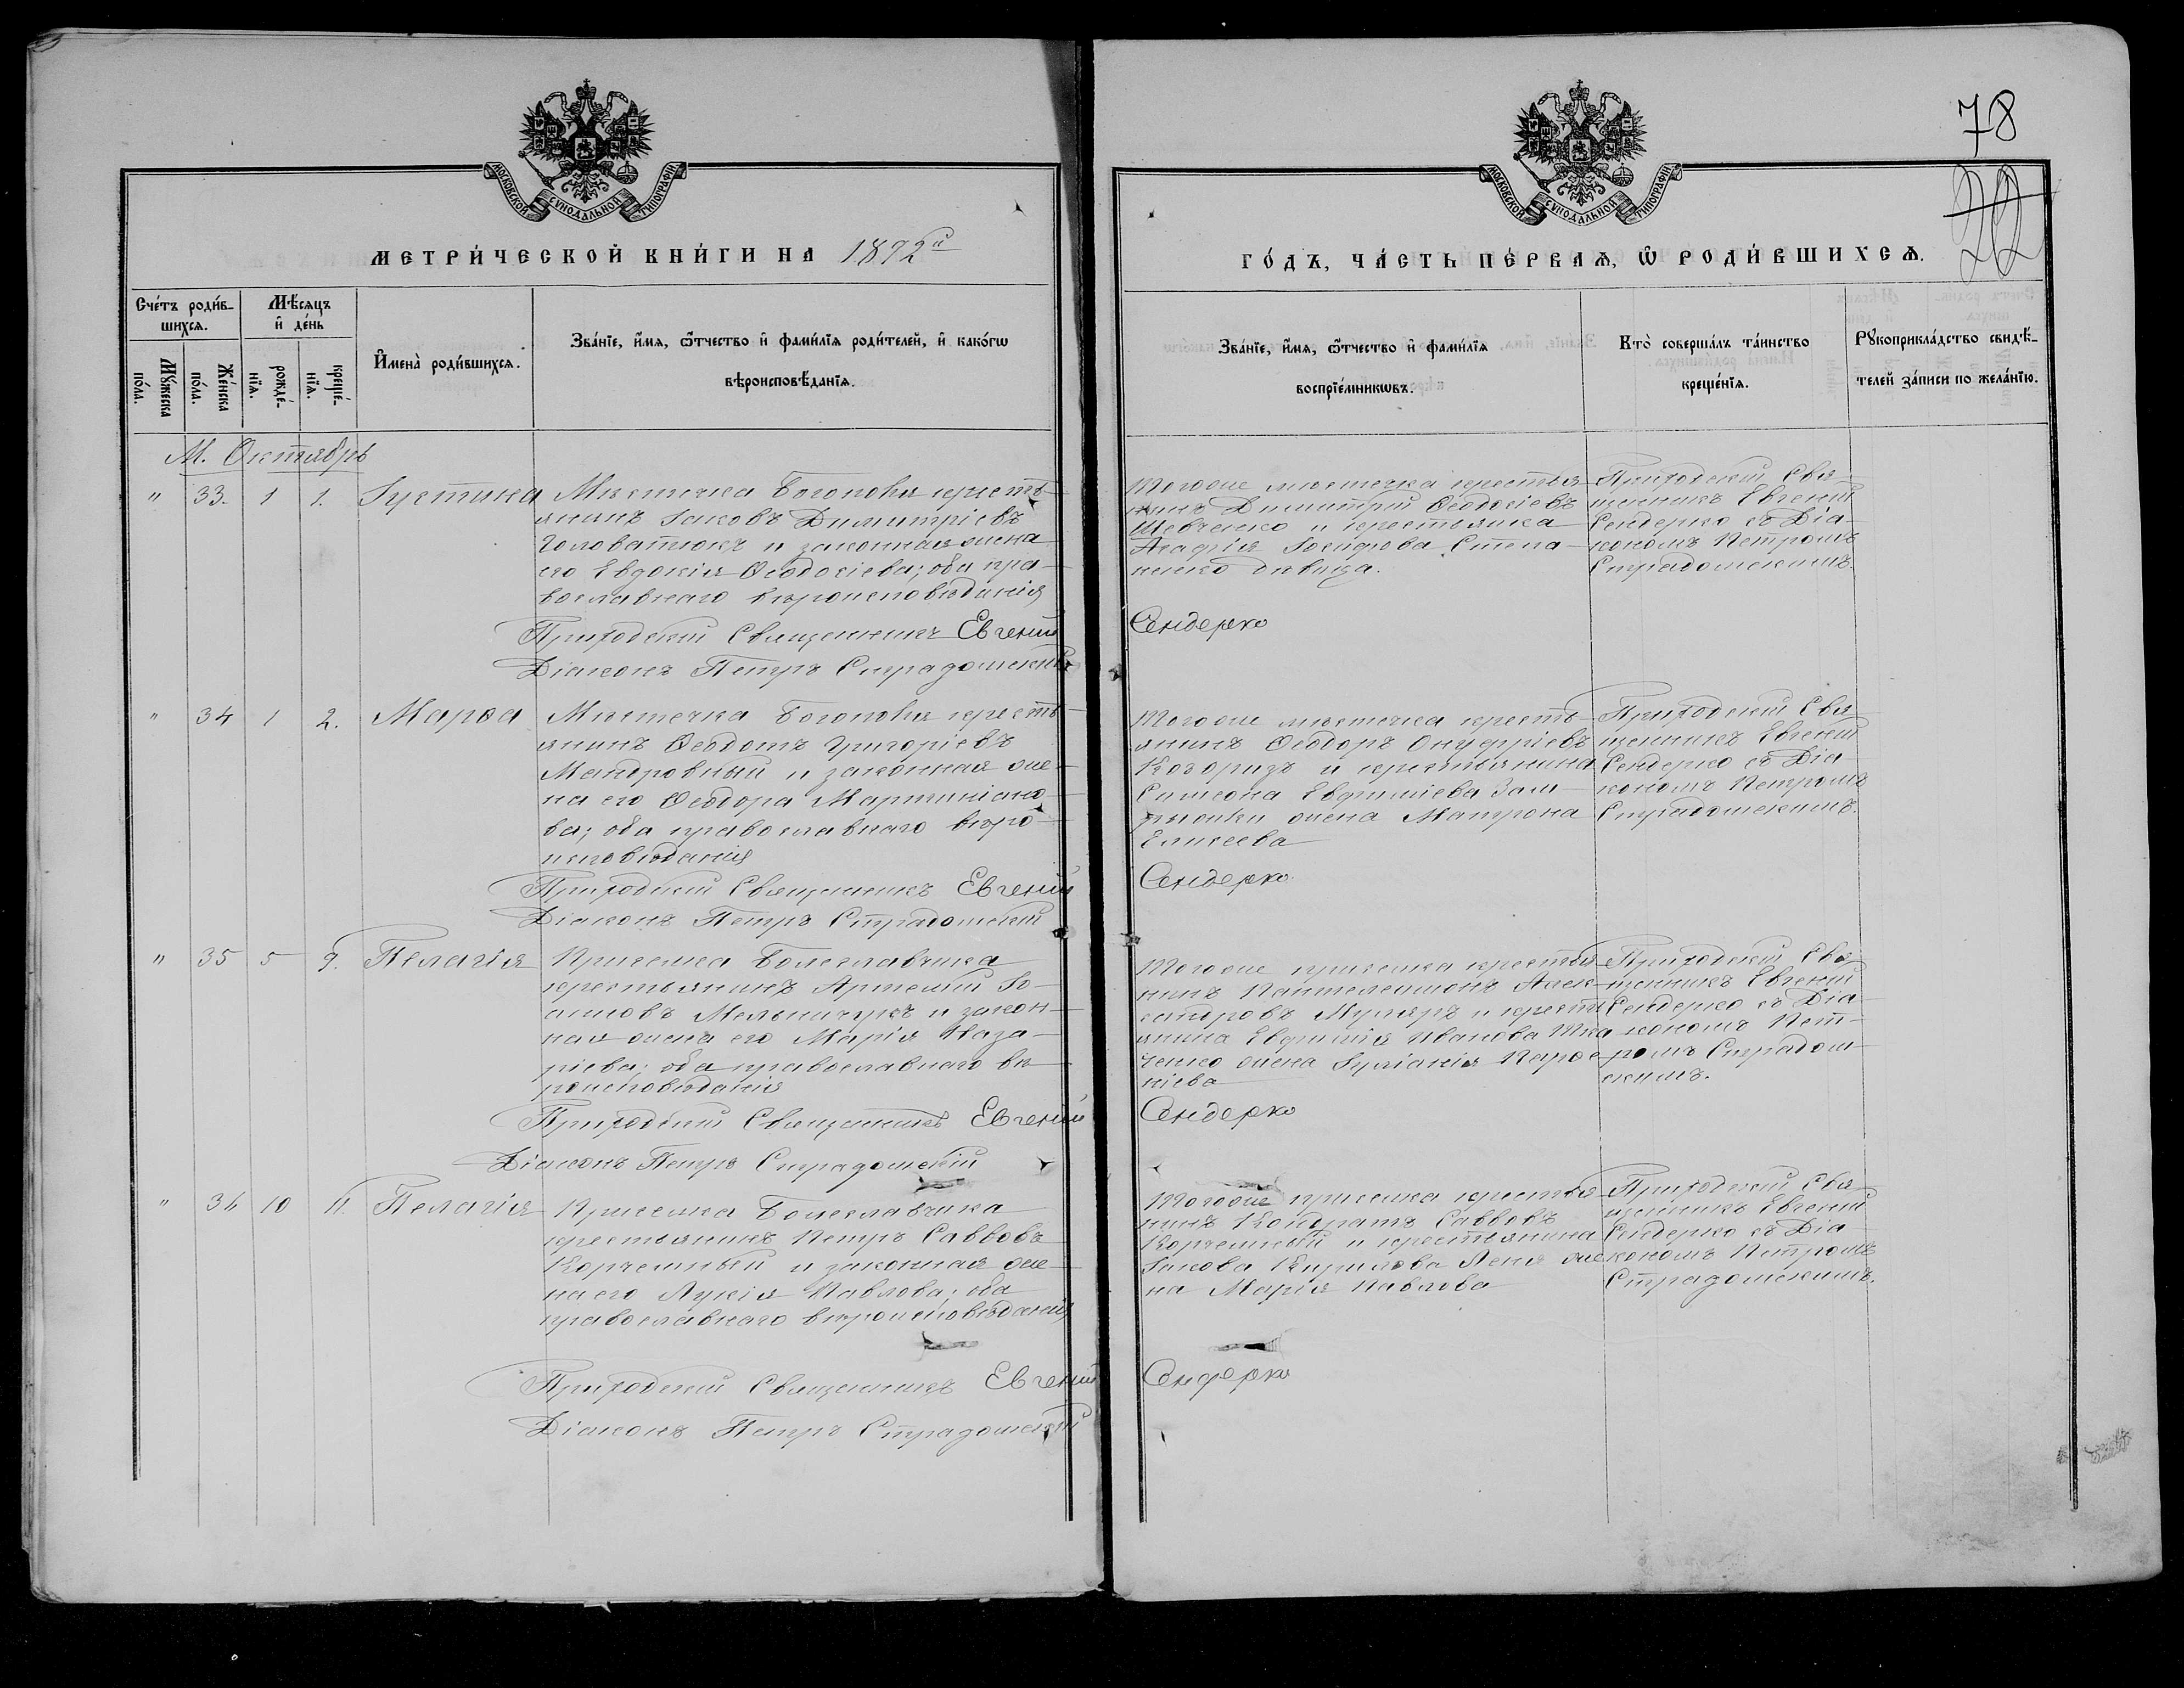 МОСКОВСКОЙ СУНОДАЛЬНОЙ ТИПОГРАФІИ
МЕТРИ́ЧЕСКОЙ КНИ́ГИ НА 1872й
Сче́тъ роди́в-
шихсѧ.
Мѣ́сѧцъ
и҆ де́нь
Мꙋ́жеска по́ла.
Же́нска по́ла.
рожде́-нїѧ.
креще́-нїѧ.
И҆мена̀ роди́вшихсѧ.
Зва́нїе, и҆́мѧ, ѻ҆́тчество и҆ фами́лїѧ роди́телей, и҆ како́гѡ
вѣроисповѣ́данїѧ.
М. Октябрь
" 33. 1 1. Іустина
Мѣстечка Богополя кресть-
янинъ Іаковъ Димитріевъ
Головатюкъ и законная жена
его Евдокія Ѳеодосіева; оба пра-
вославнаго вѣроисповѣданія
Приходскій Священникъ Евгеній
Діаконъ Петръ Страдомскій
" 34 1 2. Марѳа
Мѣстечка Богополя кресть-
янинъ Ѳеодотъ Григоріевъ
Мандровный и законная же-
на его Ѳеодора Мартиніано-
ва; оба православнаго вѣро-
исповѣданія
Приходскій Священникъ Евгеній
Діаконъ Петръ Страдомскій
" 35 5 9. Пелагія
Приселка Болеславчика
крестьянинъ Артемій Іо-
анновъ Мельничукъ и закон-
ная жена его Марія Наза-
ріева; оба православнаго вѣ-
роисповѣданія
Приходскій Священникъ Евгеній
Діаконъ Петръ Страдомскій
" 36 10 11. Пелагія
Приселка Болеславчика
крестьянинъ Петръ Саввовъ
Корчемный и законная же-
на его Лукія Павлова; оба
православнаго вѣроисповѣданія
Приходскій Священникъ Евгеній
Діаконъ Петръ Страдомскій
78
22
МОСКОВСКОЙ СУНОДАЛЬНОЙ ТИПОГРАФІИ
ГО́ДЪ, ЧА́СТЬ ПЕ́РВАѦ, Ѡ҆ РОДИ́ВШИХСѦ.
Зва́нїе, и҆́мѧ, ѻ҆́тчество и҆ фами́лїѧ
воспрїе́мникѡвъ.
Кто̀ соверша́лъ та́инство
креще́нїѧ.
Рꙋкоприкла́дство свидѣ́-
телей за́писи по жела́нїю.
Тогоже мѣстечка крестья-
нинъ Димитрій Ѳеодосіевъ
Шевченко и крестьянка
Агафія Іосифова Степа-
ненко дѣвица.
Приходскій Свя-
щенникъ Евгеній
Сендерко съ Діа-
кономъ Петромъ
Страдомскимъ.
Сендерко
Тогоже мѣстечка кресть-
янинъ Ѳеодоръ Онуфріевъ
Козоризъ и крестьянина
Симеона Евфиміева
жена Матрона
Елисеева
Приходскій Свя-
щенникъ Евгеній
Сендерко съ Діа-
кономъ Петромъ
Страдомскимъ.
Сендерко
Тогоже приселка крестья-
нинъ Пантелеимонъ Алек-
сандровъ Муляръ и кресть-
янина Евфимія Иванова Тка-
ченко жена Іуліанія Парѳе-
ніева
Приходскій Свя-
щенникъ Евгеній
Сендерко съ Діа-
кономъ Пет-
ромъ Страдом-
скимъ.
Сендерко
Тогоже приселка крестья-
нинъ Кондратъ Саввовъ
Корчемный и крестьянина
Іакова Кирилова же-
на Марія Павлова
Приходскій Свя-
щенникъ Евгеній
Сендерко съ Діа-
кономъ Петромъ
Страдомскимъ.
Сендерко